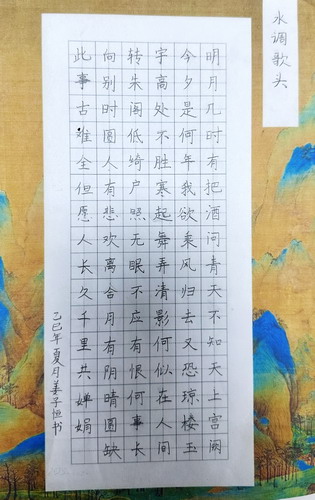 水调歌头
明月几时有把酒问青天不知天上宫阙
今夕是何年我欲乘风归去又恐琼楼玉
宇高处不胜寒起舞弄清影何似在人间
转朱阁低绮户照无眠不应有恨何事长
向别时圆人有悲欢离合月有阴晴圆缺
此事古难全但愿人长久千里共婵娟
乙巳年夏月姜子恒书